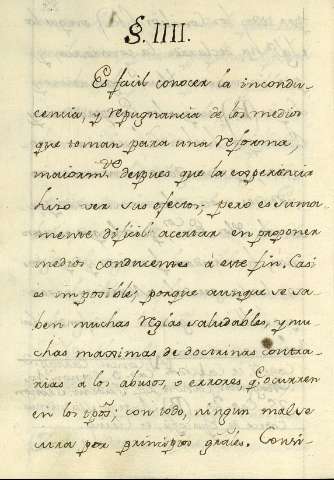 §. IIII.
Es facil conocer la incondu-
cencia, y repugnancia de los medios
que toman para una reforma,
maiorm.te despues que la experiencia
hizo ver sus efectos; pero es suma-
mente dificil acertar en proponer
medios conducentes à este fin. Casi
es imposible; porque aunque se sa-
ben muchas reglas saludables, y mu-
chas maximas de doctrinas contra-
rias à los abusos, ò errores, q.e ocurren
en los tpõs; con todo, ningun mal se
cura por principios grales. Consi-